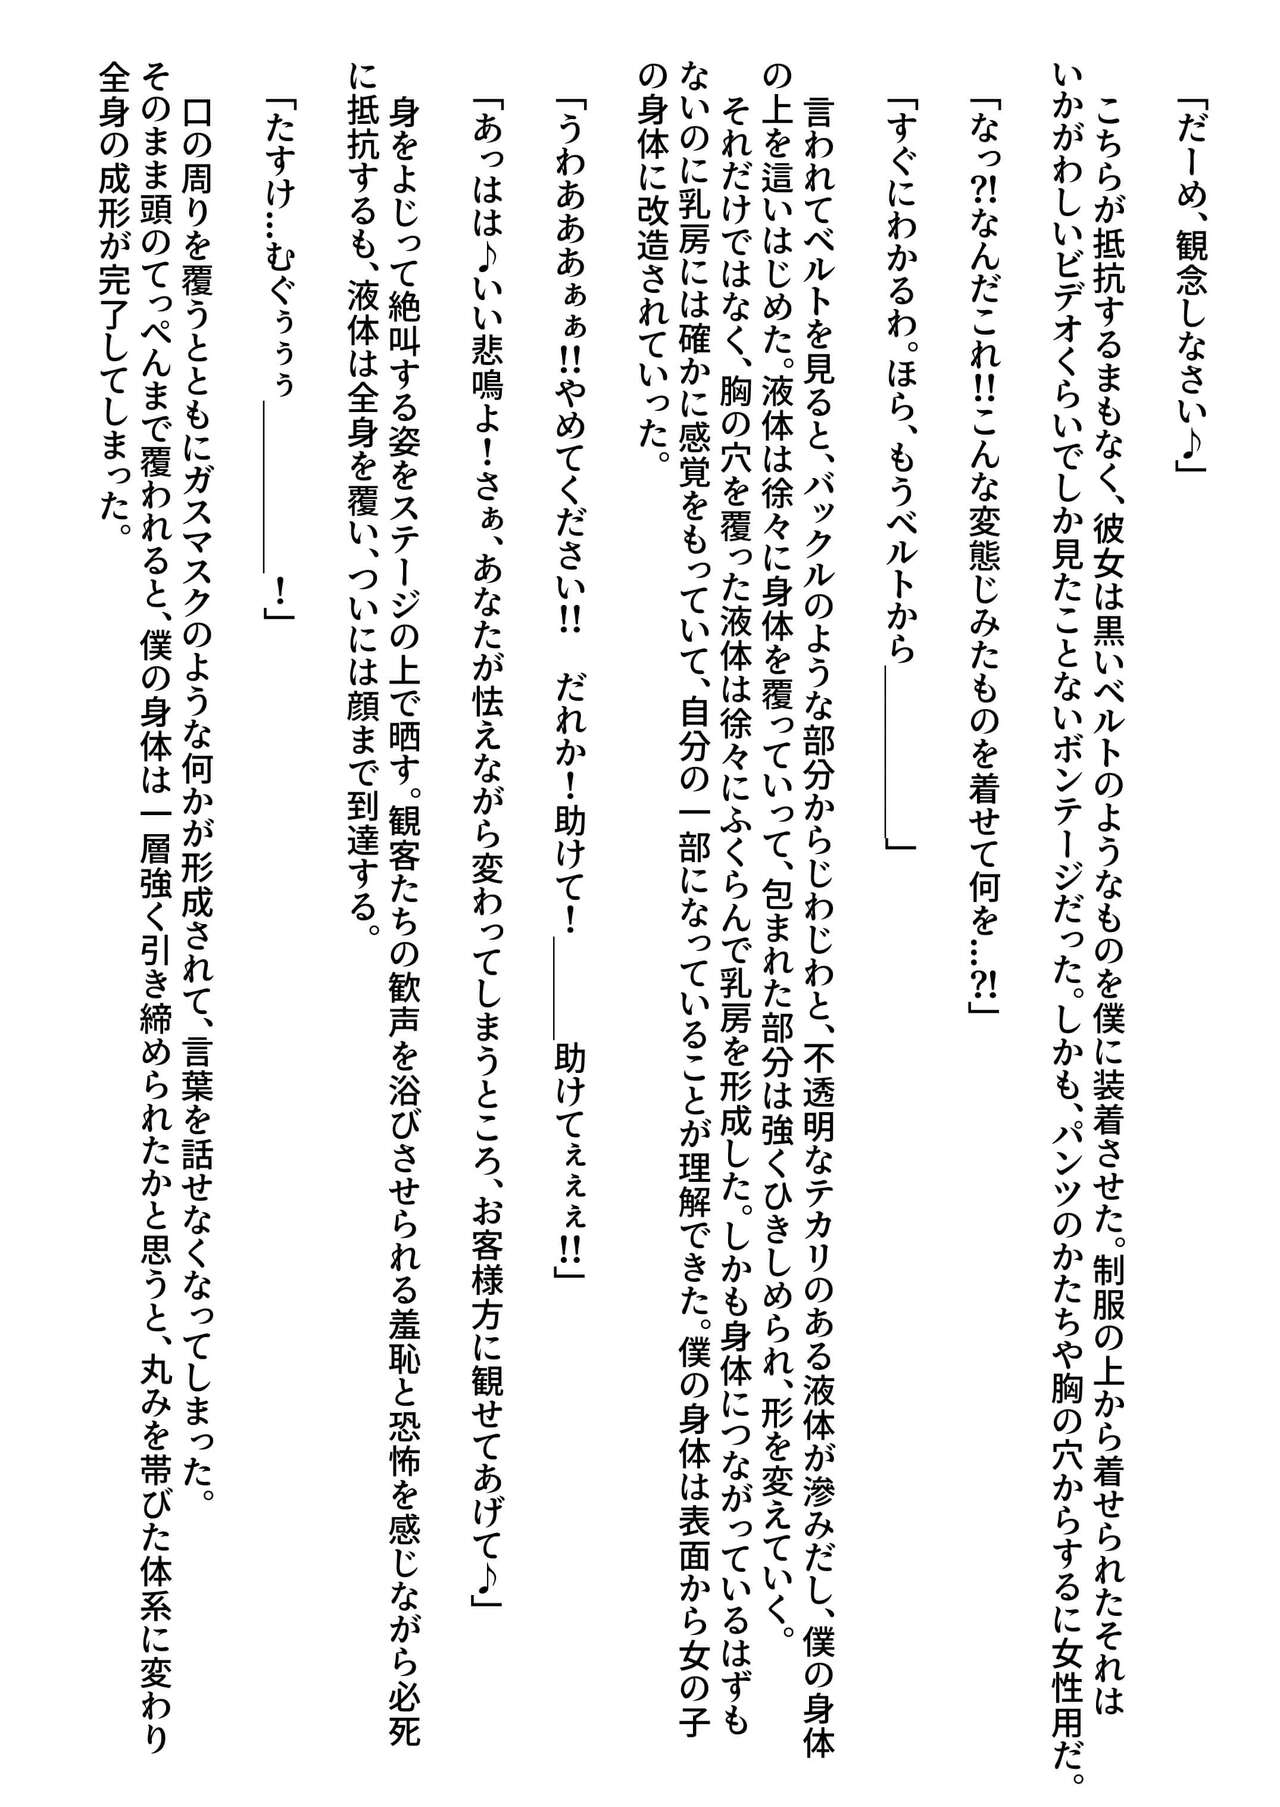 「だーめ、観念しなさい♪」
こちらが抵抗するまもなく、彼女は黒いベルトのようなものを僕に装着させた。制服の上から着せられたそれは
いかがわしいビデオくらいでしか見たことないボンテージだった。しかも、パンツのかたちや胸の穴からするに女性用だ。
「なっ?!なんだこれ!!こんな変態じみたものを着せて何を…?!」
「すぐにわかるわ。ほら、もうベルトから――――――」
言われてベルトを見ると、バックルのような部分からじわじわと、不透明なテカリのある液体が滲みだし、僕の身体
の上を這いはじめた。液体は徐々に身体を覆っていって、包まれた部分は強くひきしめられ、形を変えていく。
それだけではなく、胸の穴を覆った液体は徐々にふくらんで乳房を形成した。しかも身体につながっているはずも
ないのに乳房には確かに感覚をもっていて、自分の一部になっていることが理解できた。僕の身体は表面から女の子
の身体に改造されていった。
「うわあああぁぁ!!やめてください!!　だれか！助けて！――――助けてぇぇぇ!!」
「あっはは♪いい悲鳴よ！さぁ、あなたが怯えながら変わってしまうところ、お客様方に観せてあげて♪」
身をよじって絶叫する姿をステージの上で晒す。観客たちの歓声を浴びさせられる羞恥と恐怖を感じながら必死
に抵抗するも、液体は全身を覆い、ついには顔まで到達する。
「たすけ…むぐぅぅぅ――――――！」
口の周りを覆うとともにガスマスクのような何かが形成されて、言葉を話せなくなってしまった。
そのまま頭のてっぺんまで覆われると、僕の身体は一層強く引き締められたかと思うと、丸みを帯びた体系に変わり
全身の成形が完了してしまった。